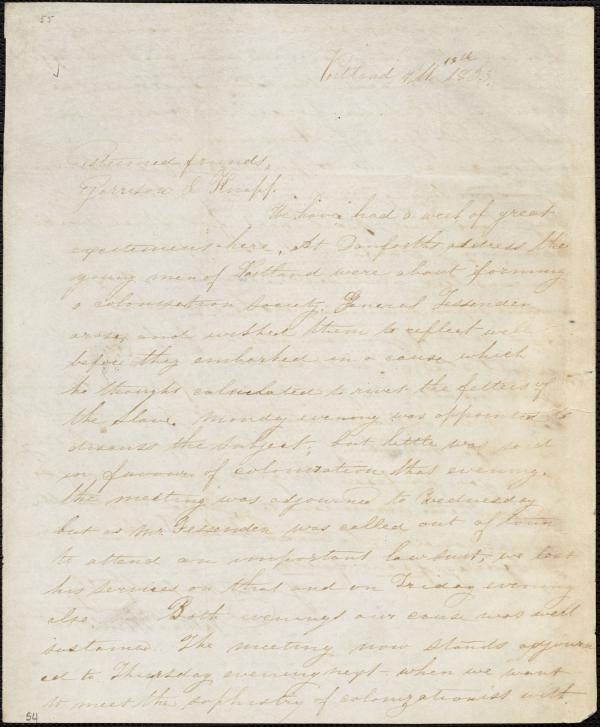 55
Portland 18th 1833.
Esteemed friends,
Garrison & Knapp.
We have had a week of great
excitement here. At Danforth's address the
young men of Portland were about forming
a colonisation society. General Fessenden
arose, and wished them to reflect well
before they embarked in a cause which
he thought calculated to rivet the fetters of
the slave. Monday evening was appointed to
discuss the subject, but little was said
in favour of colonization that evening.
the meeting was adjourned to Wednesday
but as Mr Fessenden was called out of Town
to attend an important lawsuit, we lost
his services on that and on Friday evening
also. Both evenings our cause was well
sustained. The meeting now stands adjourn
ed to Thursday evening next when we want
to meet the sophistry of colonizationist with
54